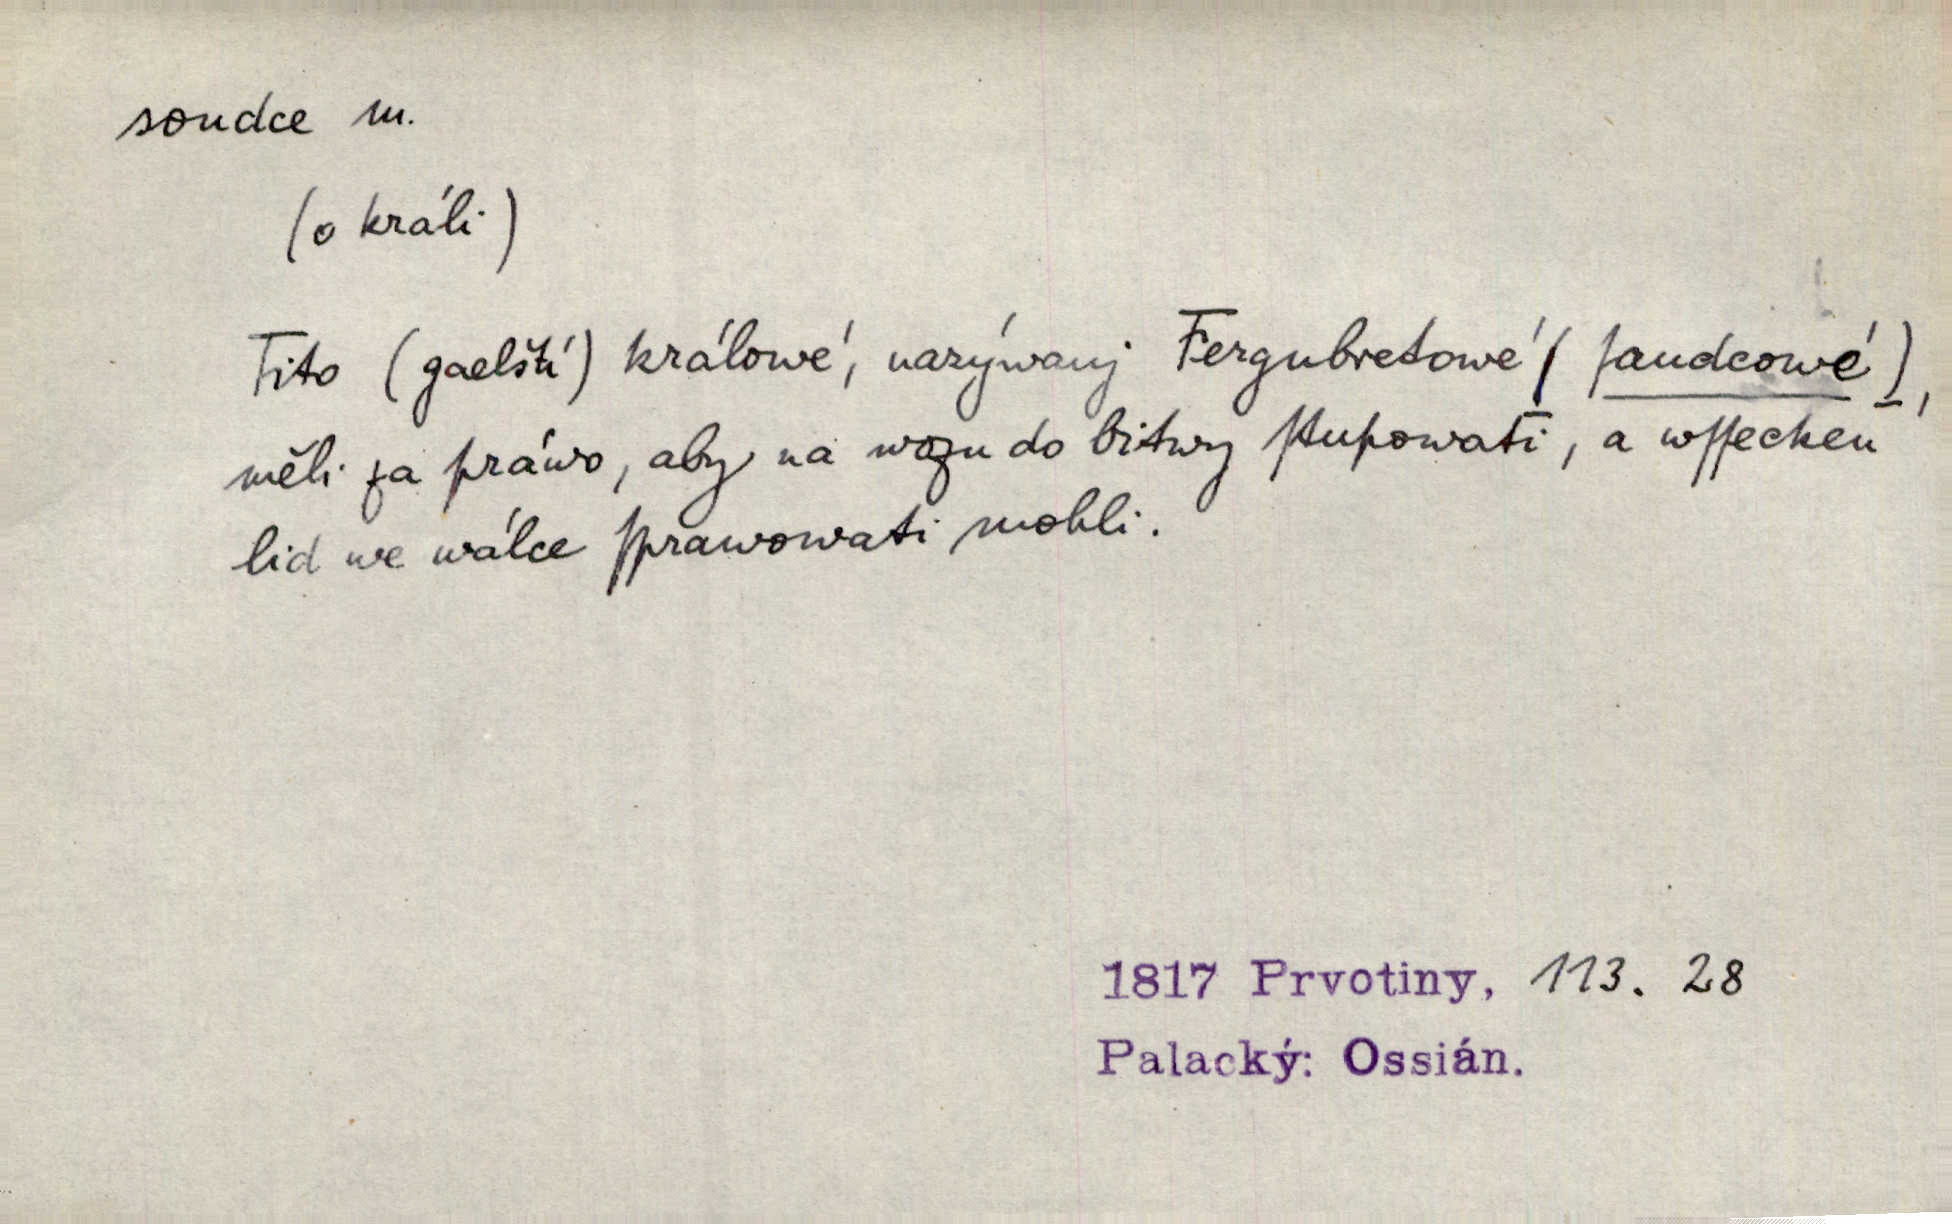 soudce m.
(o králi)
Tito (gaelští) králowé, nazýwanj Fergubretowé (ſaudcowé),
měli za práwo, aby na wozu do bitwy ſtupowati, a wſſecken
lid we wálce ſprawowati mohli.
1817 Prvotiny, 113. 28
Palacký: Ossián.